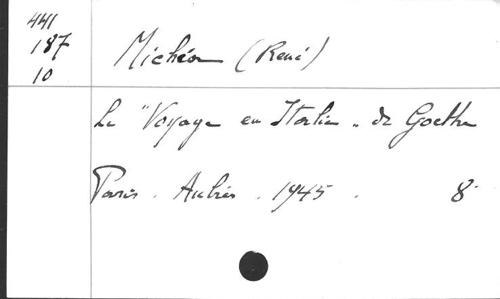 441
187
10
Michéa (René)
Le "Voyage en Italie" de Goethe
Paris. Aubier. 1945. 8°